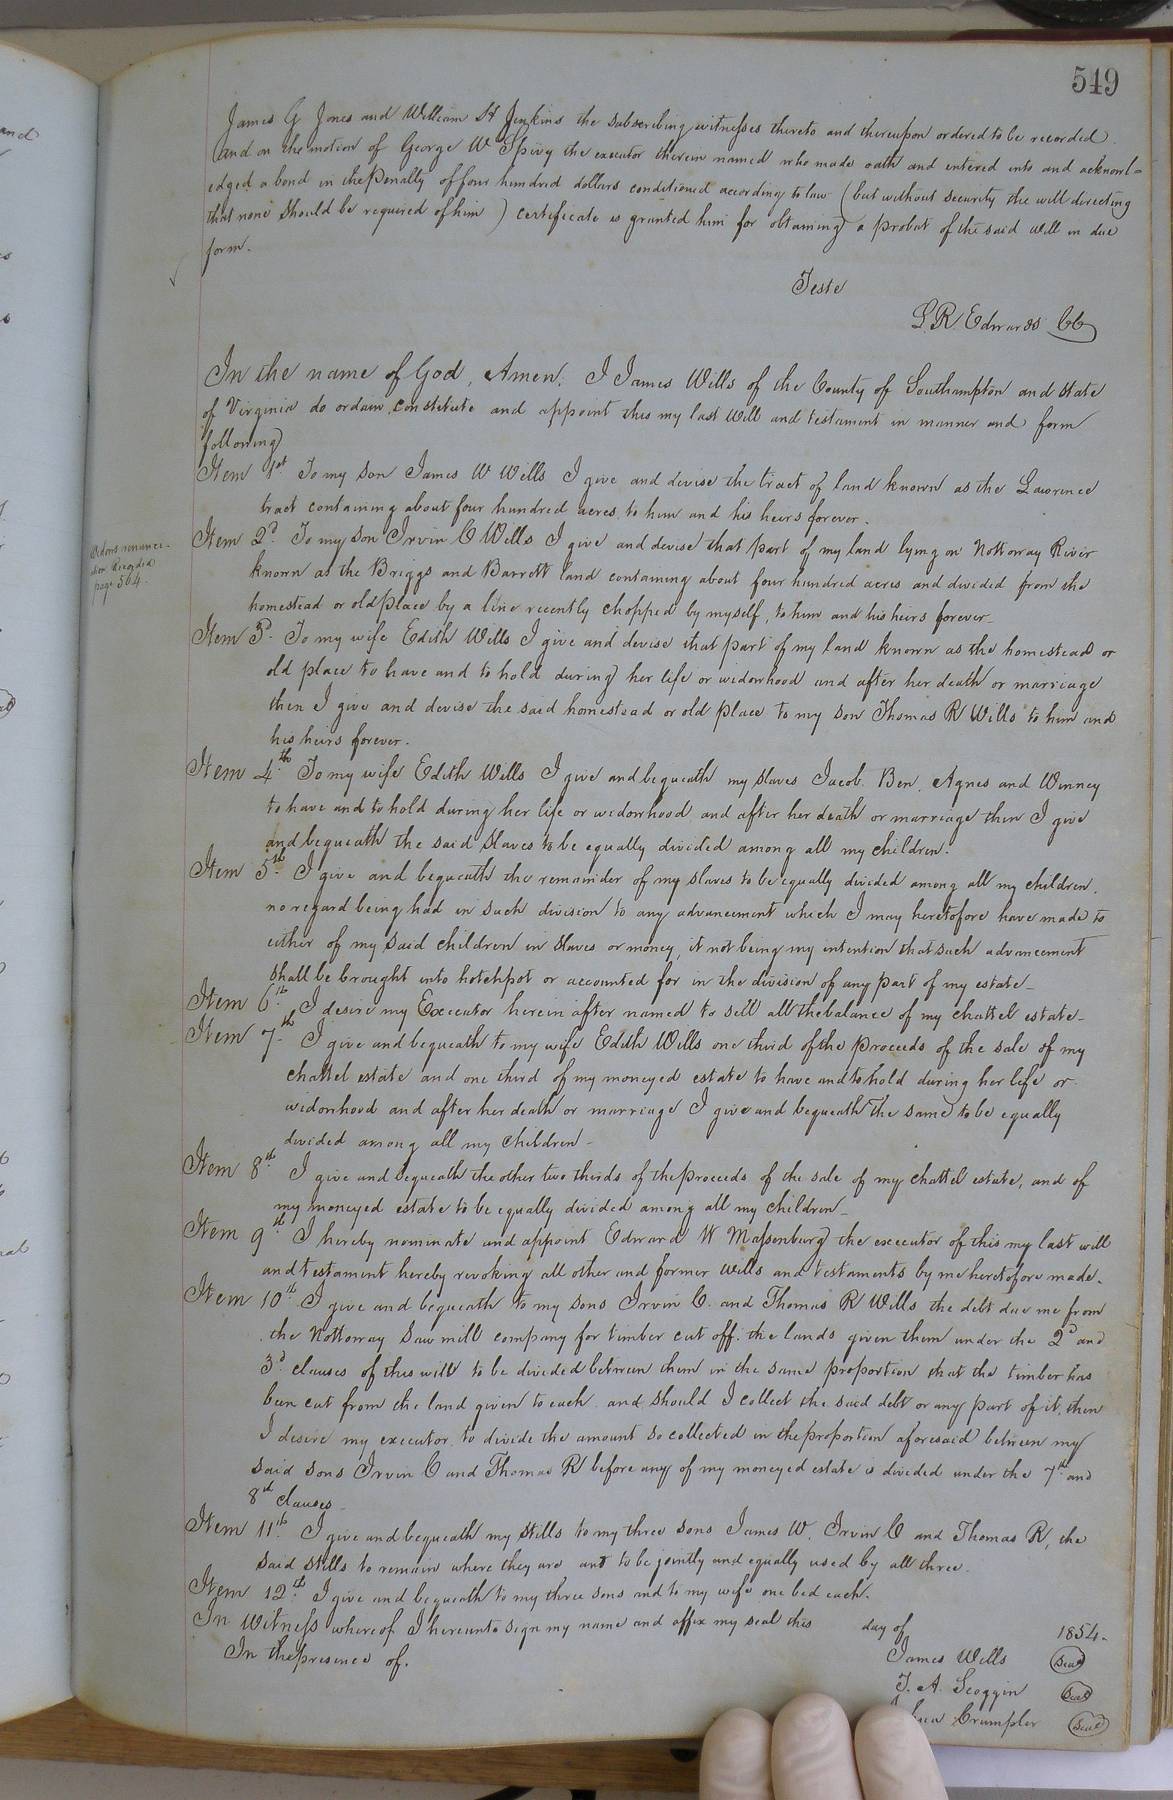 549
James G Jones and William H Jenkins the subscribing witnesses thereto and thereupon ordered to be recorded
And on the motion of George W Spivy the executor therein named who made oath and entered into and acknowl-
edged a bond in the Penalty of four hundred dollars conditioned according to law (but without security the will directing
that none should be required of him) certificate is granted him for obtaining a probat of the said will in due
form.
Teste
L. R. Edwards CC
In the name of God, Amen. I James Wills of the County of Southampton and State
of Virginia do ordain, constitute and appoint this my last Will and testament in manner and form
following
Item 1st To my son James W Wills I give and devise the tract of land known as the Lawrence
tract containing about four hundred acres, to him and his heirs forever.
Item 2d. To my son Irvin C Wills I give and devise that part of my land lying on Nottoway River
known as the Briggs and Barrett land containing about four hundred acres and divided from the
homestead or old place by a line recently chopped by myself, to him and his heirs forever-
page 564.
Item 3d. To my wife Edith Wills I give and devise that part of my land known as the homestead or
old place to have and to hold during her life or widowhood and after her death or marriage
then I give and devise the said homestead or old place to my son Thomas R Wills to him and
his heirs forever.
Item 4th To my wife Edith Wills I give and bequeath my slaves Jacob. Ben. Agnes and Winney
to have and to hold during her life or widowhood and after her death or marriage then I give
and bequeath the said slaves to be equally divided among all my children.
Item 5th. I give and bequeath the remainder of my slaves to be equally divided among all my children.
no regard being had in such division to any advancement which I may heretofore have made to
either of my said children in slaves or money, it not being my intention that such advancement
shall be brought into hotchpot or accounted for in the division of any part of my estate-
Item 6th. I desire my Executor herein after named to sell all the balance of my chattel estate-
Item 7th I give and bequeath to my wife Edith Wills one third of the proceeds of the sale of my
chattel estate and one third of my moneyed estate to have and to hold during her life or
widowhood and after her death or marriage I give and bequeath the same to be equally
divided among all my children-
Item 8th I give and bequeath the other two thirds of the proceeds of the sale of my chattel estate, and of
my moneyed estate to be equally divided among all my children-
Item 9th I hereby nominate and appoint Edward W Massenburg the executor of this my last will
and testament hereby revoking all other and former wills and testaments by me heretofore made.
Item 10th I give and bequeath to my sons Irvin C. and Thomas R Wills the debt due me from
the Nottoway Saw mill company for timber cut off the lands given them under the 2d and
3d clauses of this will to be divided between them in the same proportion that the timber has
been cut from the land given to each and should I collect the said debt or any part of it, then
I desire my executor to divide the amount so collected in the proportion aforesaid between my
said sons Irvin C and Thomas R before any of my moneyed estate is divided under the 7th and
8th clauses-
Item 11th I give and bequeath my stills to my three sons James W. Irvin C and Thomas R, the
said stills to remain where they are and to be jointly and equally used by all three.
Item 12th I give and bequeath to my three sons and to my wife one bed each.
In Witness whereof I hereunto sign my name and affix my seal this day of 1854-
In the presence of. James Wills Seal
T. A. Scoggin Seal
Crumpler Seal